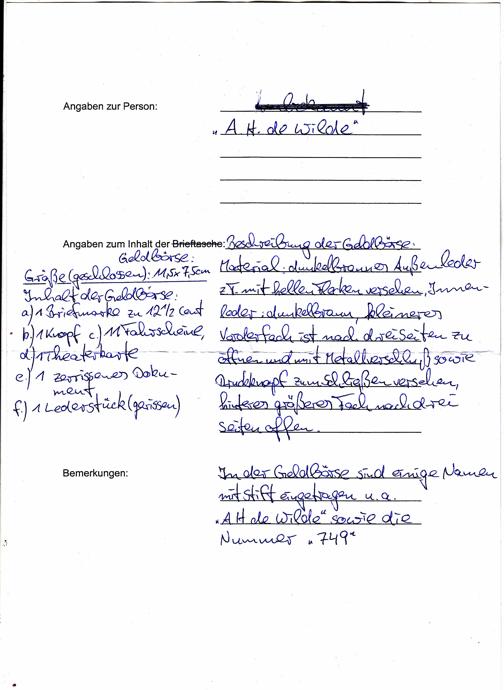 Angaben zur Person:
"A.H. de Wilde"
Angaben zum Inhalt der Brieftasche: Beschreibung der Geldbörse:
Geldbörse:
Größe (geschlossen): 11,5 x 7,5cm
Inhalt der Geldbörse:
a) 1 Briefmarke zu 12 1/2 Cent
b) 1 Knopf c) 11 Fahrscheine,
d) 1 Theaterkarte
e) 1 zerrissenes Doku-
ment
f.) 1 Lederstück (gerissen)
Material: dunkelbraunes Außenleder
z.T. mit hellen Flecken versehen, Innen-
leder: dunkelbraun, kleineres
Vorderfach ist nach drei Seiten zu
öffnen und mit Metallverschluß sowie
Druckknopf zum Schließen versehen,
hinteres größeres Fach nach drei
Seiten offen.
Bemerkungen:
In der Geldbörse sind einige Namen
mit Stift eingetragen u.a.
"AH de Wilde" sowie die
Nummer "749"